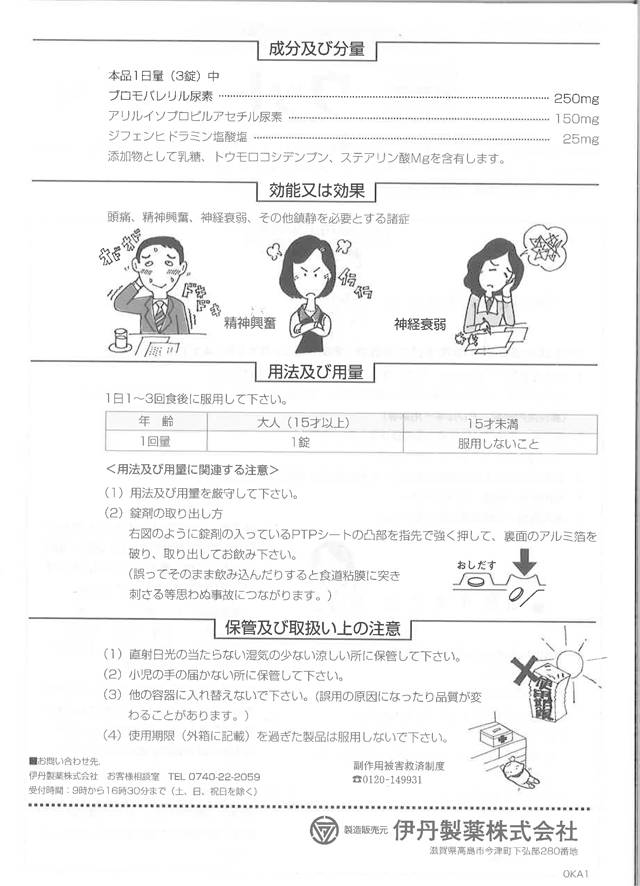 成分及び分量
本品1日量（3錠）中
ブロモバレリル尿素 250mg
アリルイソプロピルアセチル尿素 150mg
ジフェンヒドラミン塩酸塩 25mg
添加物として乳糖、トウモロコシデンプン、ステアリン酸Mgを含有します。
効能又は効果
頭痛、精神興奮、神経衰弱、その他鎮静を必要とする諸症
オドオド
ドキドキ
イライラ
精神興奮
神経衰弱
用法及び用量
1日1～3回食後に服用して下さい。
年　齢 大人（15才以上） 15才未満
1回量 1錠 服用しないこと
＜用法及び用量に関連する注意＞
（1）用法及び用量を厳守して下さい。
（2）錠剤の取り出し方
右図のように錠剤の入っているPTPシートの凸部を指先で強く押して、裏面のアルミ箔を
破り、取り出してお飲み下さい。
（誤ってそのまま飲み込んだりすると食道粘膜に突き
刺さる等思わぬ事故につながります。）
おしだす
保管及び取扱い上の注意
（1）直射日光の当たらない湿気の少ない涼しい所に保管して下さい。
（2）小児の手の届かない所に保管して下さい。
（3）他の容器に入れ替えないで下さい。（誤用の原因になったり品質が変
わることがあります。）
（4）使用期限（外箱に記載）を過ぎた製品は服用しないで下さい。
使用期限
■お問い合わせ先.
伊丹製薬株式会社　お客様相談室　TEL 0740-22-2059
受付時間：9時から16時30分まで（土、日、祝日を除く）
副作用被害救済制度
☎0120-149931
製造販売元 伊丹製薬株式会社
滋賀県高島市今津町下弘部280番地
OKA1